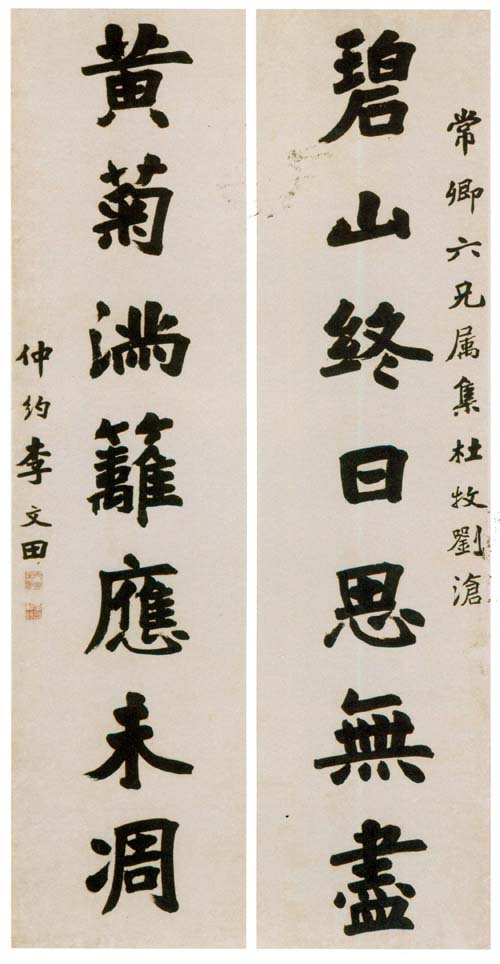 常卿六兄属集杜牧劉滄
碧山終日思無盡
黄菊滿籬應未凋
仲約李文田